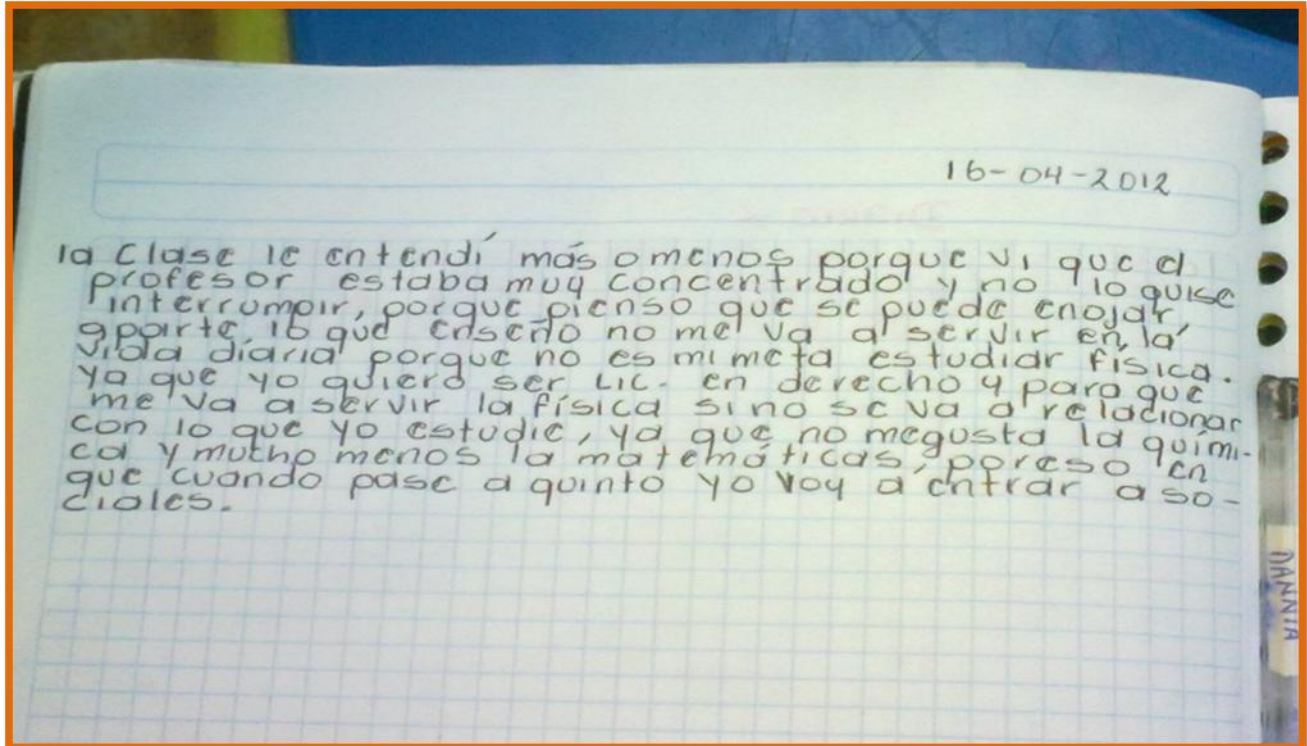 16-04-2012
la Clase le entendí más omenos porque vi que el
profesor estaba muy concentrado y no lo quise
interrumpir, porque pienso que se puede enojar,
aparte, lo que enseño no me va a servir en la
vida diaria porque no es mi meta estudiar física.
Ya que yo quiero ser Lic. en derecho y para que
me va aservir la física sino se va a relacionar
con lo que yo estudie, ya que no megusta la quími-
ca y mucho menos la matemáticas, poreso en
que cuando pase a quinto yo voy a entrar a so-
ciales.
DANNIA